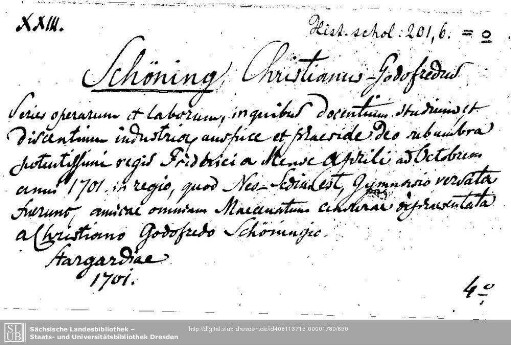 XXIII.
Hist. schol: 201,6. = o
Schöning, Christianus-Godofredus
Series operarum et laborum, in quibus docentium studium et
discentium industria, auspice et praeside Deo sub umbra
potentissimi regis Friderici a Mense Aprili ad Octobrem
anni 1701. in regio, quod est, Gymnasio versata
fuerunt, amicae omnium Maecenatum censurae
a Christiano Godofredo Schöningio.
Stargardiae
1701.
4o
SLUB
Sächsische Landesbibliothek –
Staats- und Universitätsbibliothek Dresden